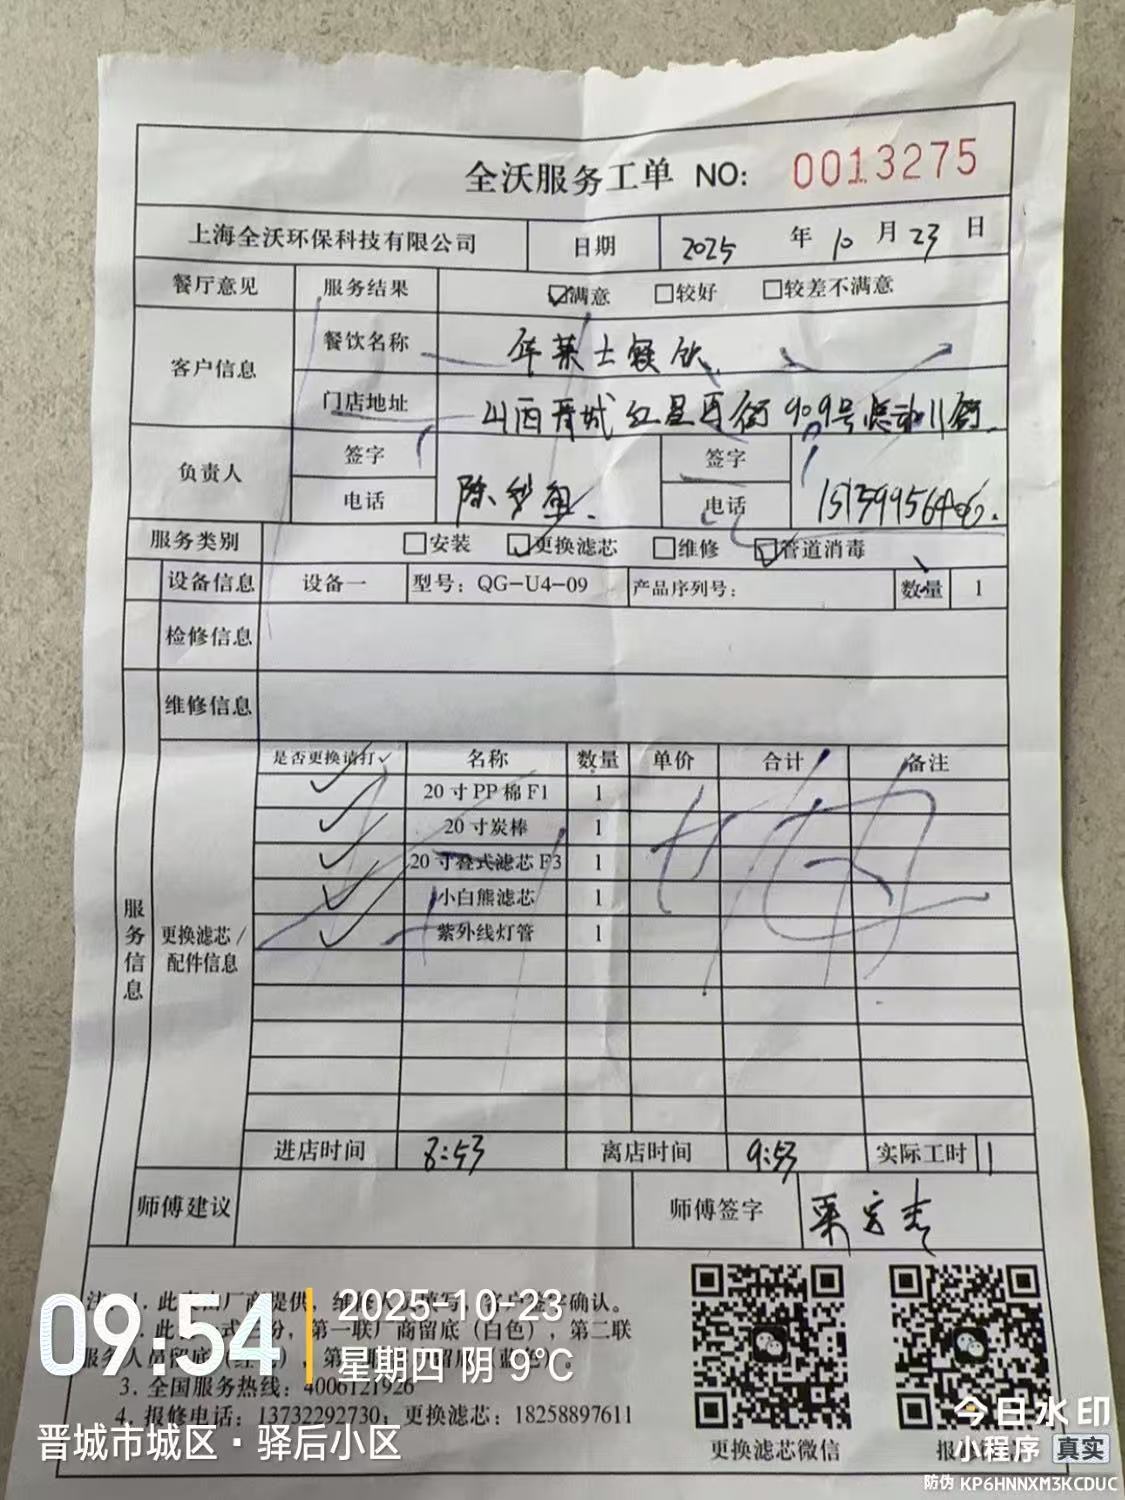 全沃服务工单 NO: 0013275
上海全沃环保科技有限公司 日期 2025 年 10 月 23 日
餐厅意见 服务结果 ☑满意 ☐较好 ☐较差不满意
客户信息 餐饮名称 华莱士餐饮
门店地址 山西晋城红星西街909号
负责人 签字 签字
电话 陈 电话
服务类别 ☐安装 ☑更换滤芯 ☐维修 ☑管道消毒
设备信息 设备一 型号：QG-U4-09 产品序列号： 数量 1
检修信息
维修信息
服务信息
更换滤芯/
配件信息
是否更换请打✓ 名称 数量 单价 合计 备注
✓ 20寸PP棉F1 1
✓ 20寸炭棒 1
✓ 20寸叠式滤芯F3 1
✓ 小白熊滤芯 1
✓ 紫外线灯管 1
进店时间 8:53 离店时间 9:53 实际工时 1
师傅建议 师傅签字
注：1. 此 由厂商提供，维修人 填写，客户签字确认。
此 一式三份，第一联厂商留底（白色），第二联
服务人员留底（红色），第 留底（蓝色）。
3. 全国服务热线：4006121926
4. 报修电话：13732292730；更换滤芯：18258897611
更换滤芯微信
09:54
2025-10-23
星期四 阴 9℃
晋城市城区·驿后小区
今日水印
小程序 真实
防伪 KP6HNNXM3KCDUC